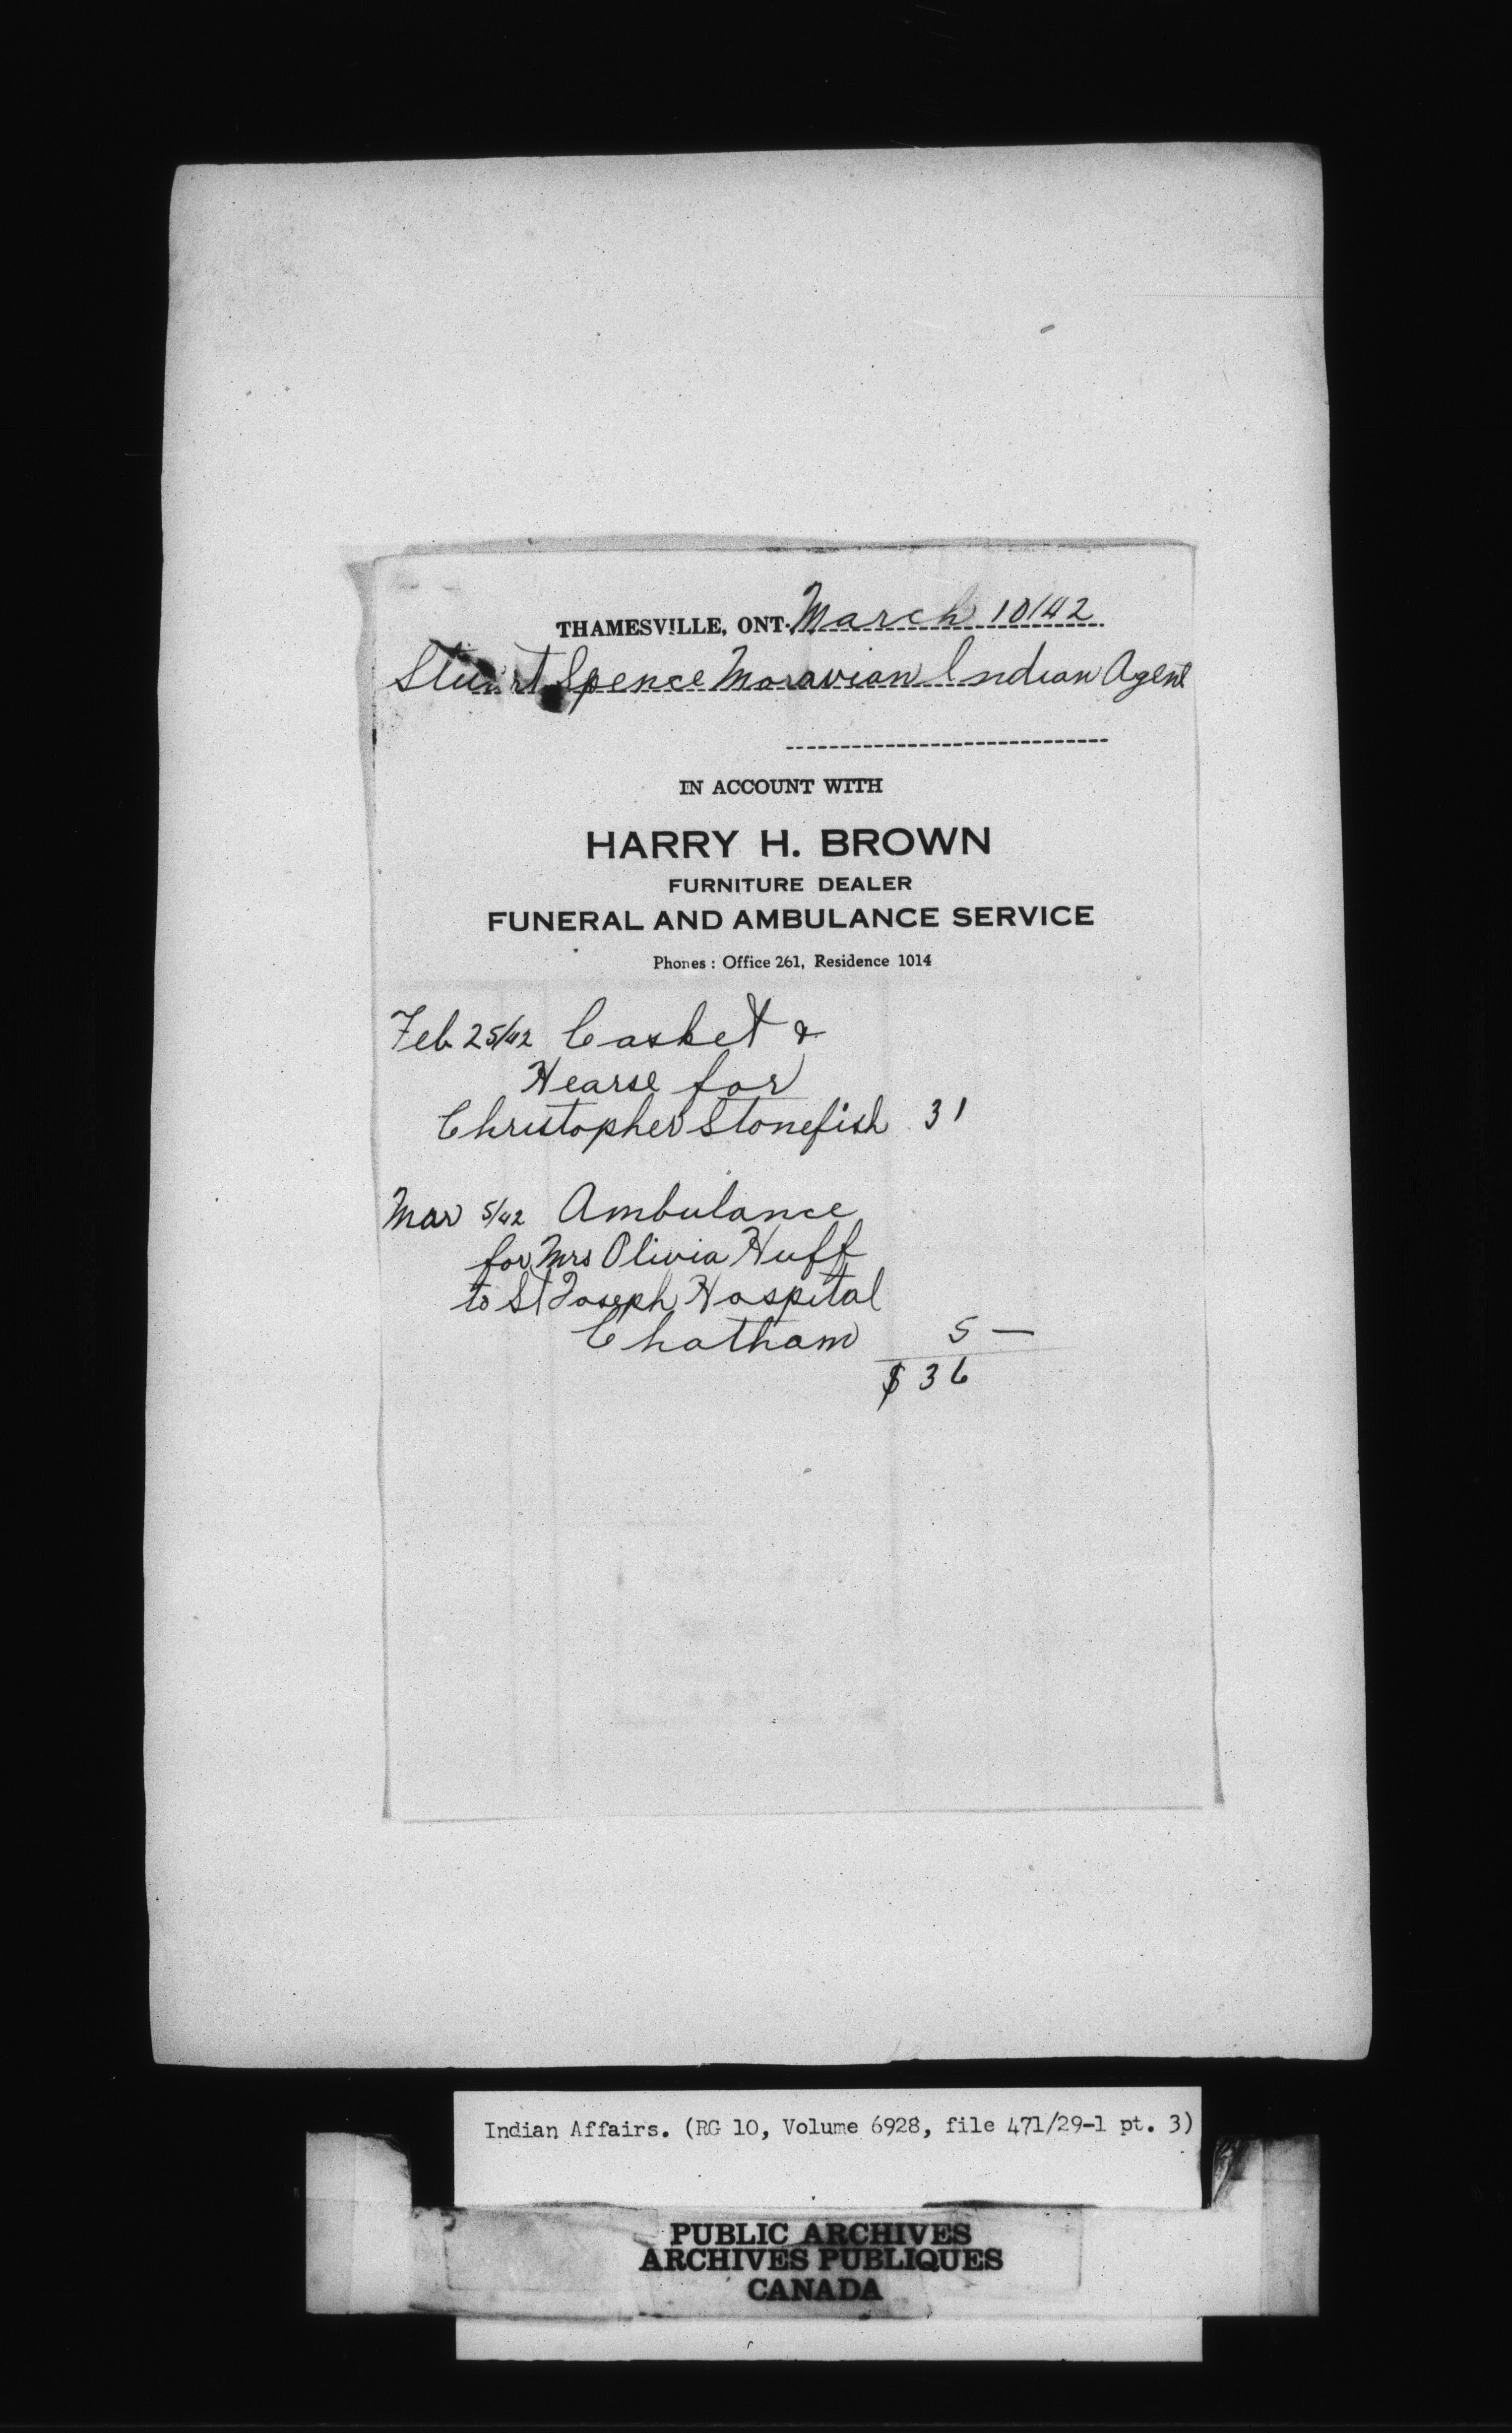 THAMESVILLE, ONT. March 10/42
Stuart Spence Moravian Indian Agent
IN ACCOUNT WITH
HARRY H. BROWN
FURNITURE DEALER
FUNERAL AND AMBULANCE SERVICE
Phones : Office 261, Residence 1014
Feb 25/42 Casket &
Hearse for
Christopher Stonefish 31
Mar 5/42 Ambulance
for Mrs Olivia Huff
to St Joseph Hospital
Chatham 5 —
$ 36
Indian Affairs. (RG 10, Volume 6928, file 471/29-1 pt. 3)
PUBLIC ARCHIVES
ARCHIVES PUBLIQUES
CANADA